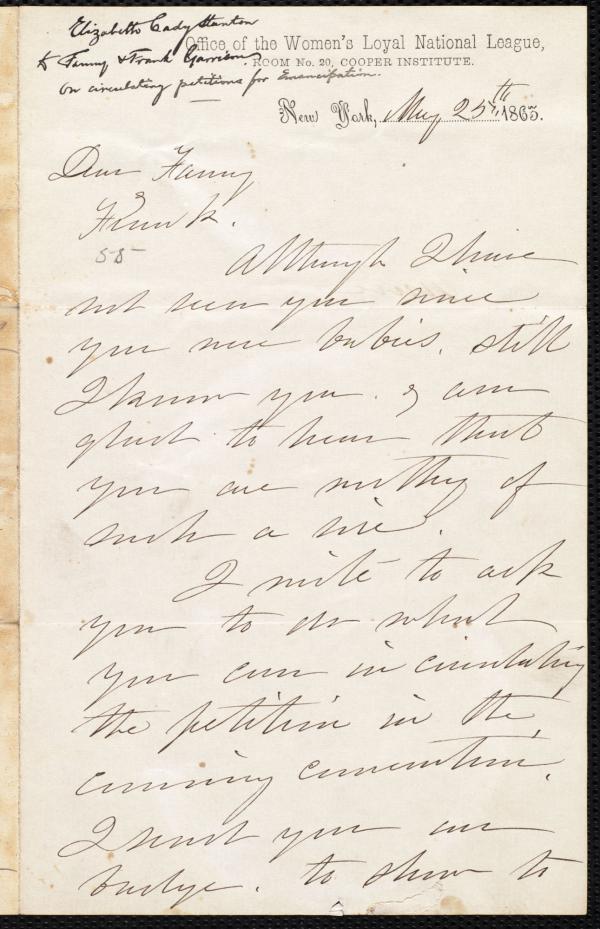 Elizabeth Cady Stanton
to Fanny & Frank Garrison,
on circulating petitions for Emancipation.
Office of the Women's Loyal National League,
ROOM No. 20, COOPER INSTITUTE.
New York, May 25th, 1863.
Dear Fanny
&
Frank.
58
Although I have
not seen you since
you were babies, still
I know you. & am
glad to hear that
you are worthy of
such a sire.
I write to ask
you to do what
you can in circulating
the petition in the
coming convention.
I send you our
badge. to show to